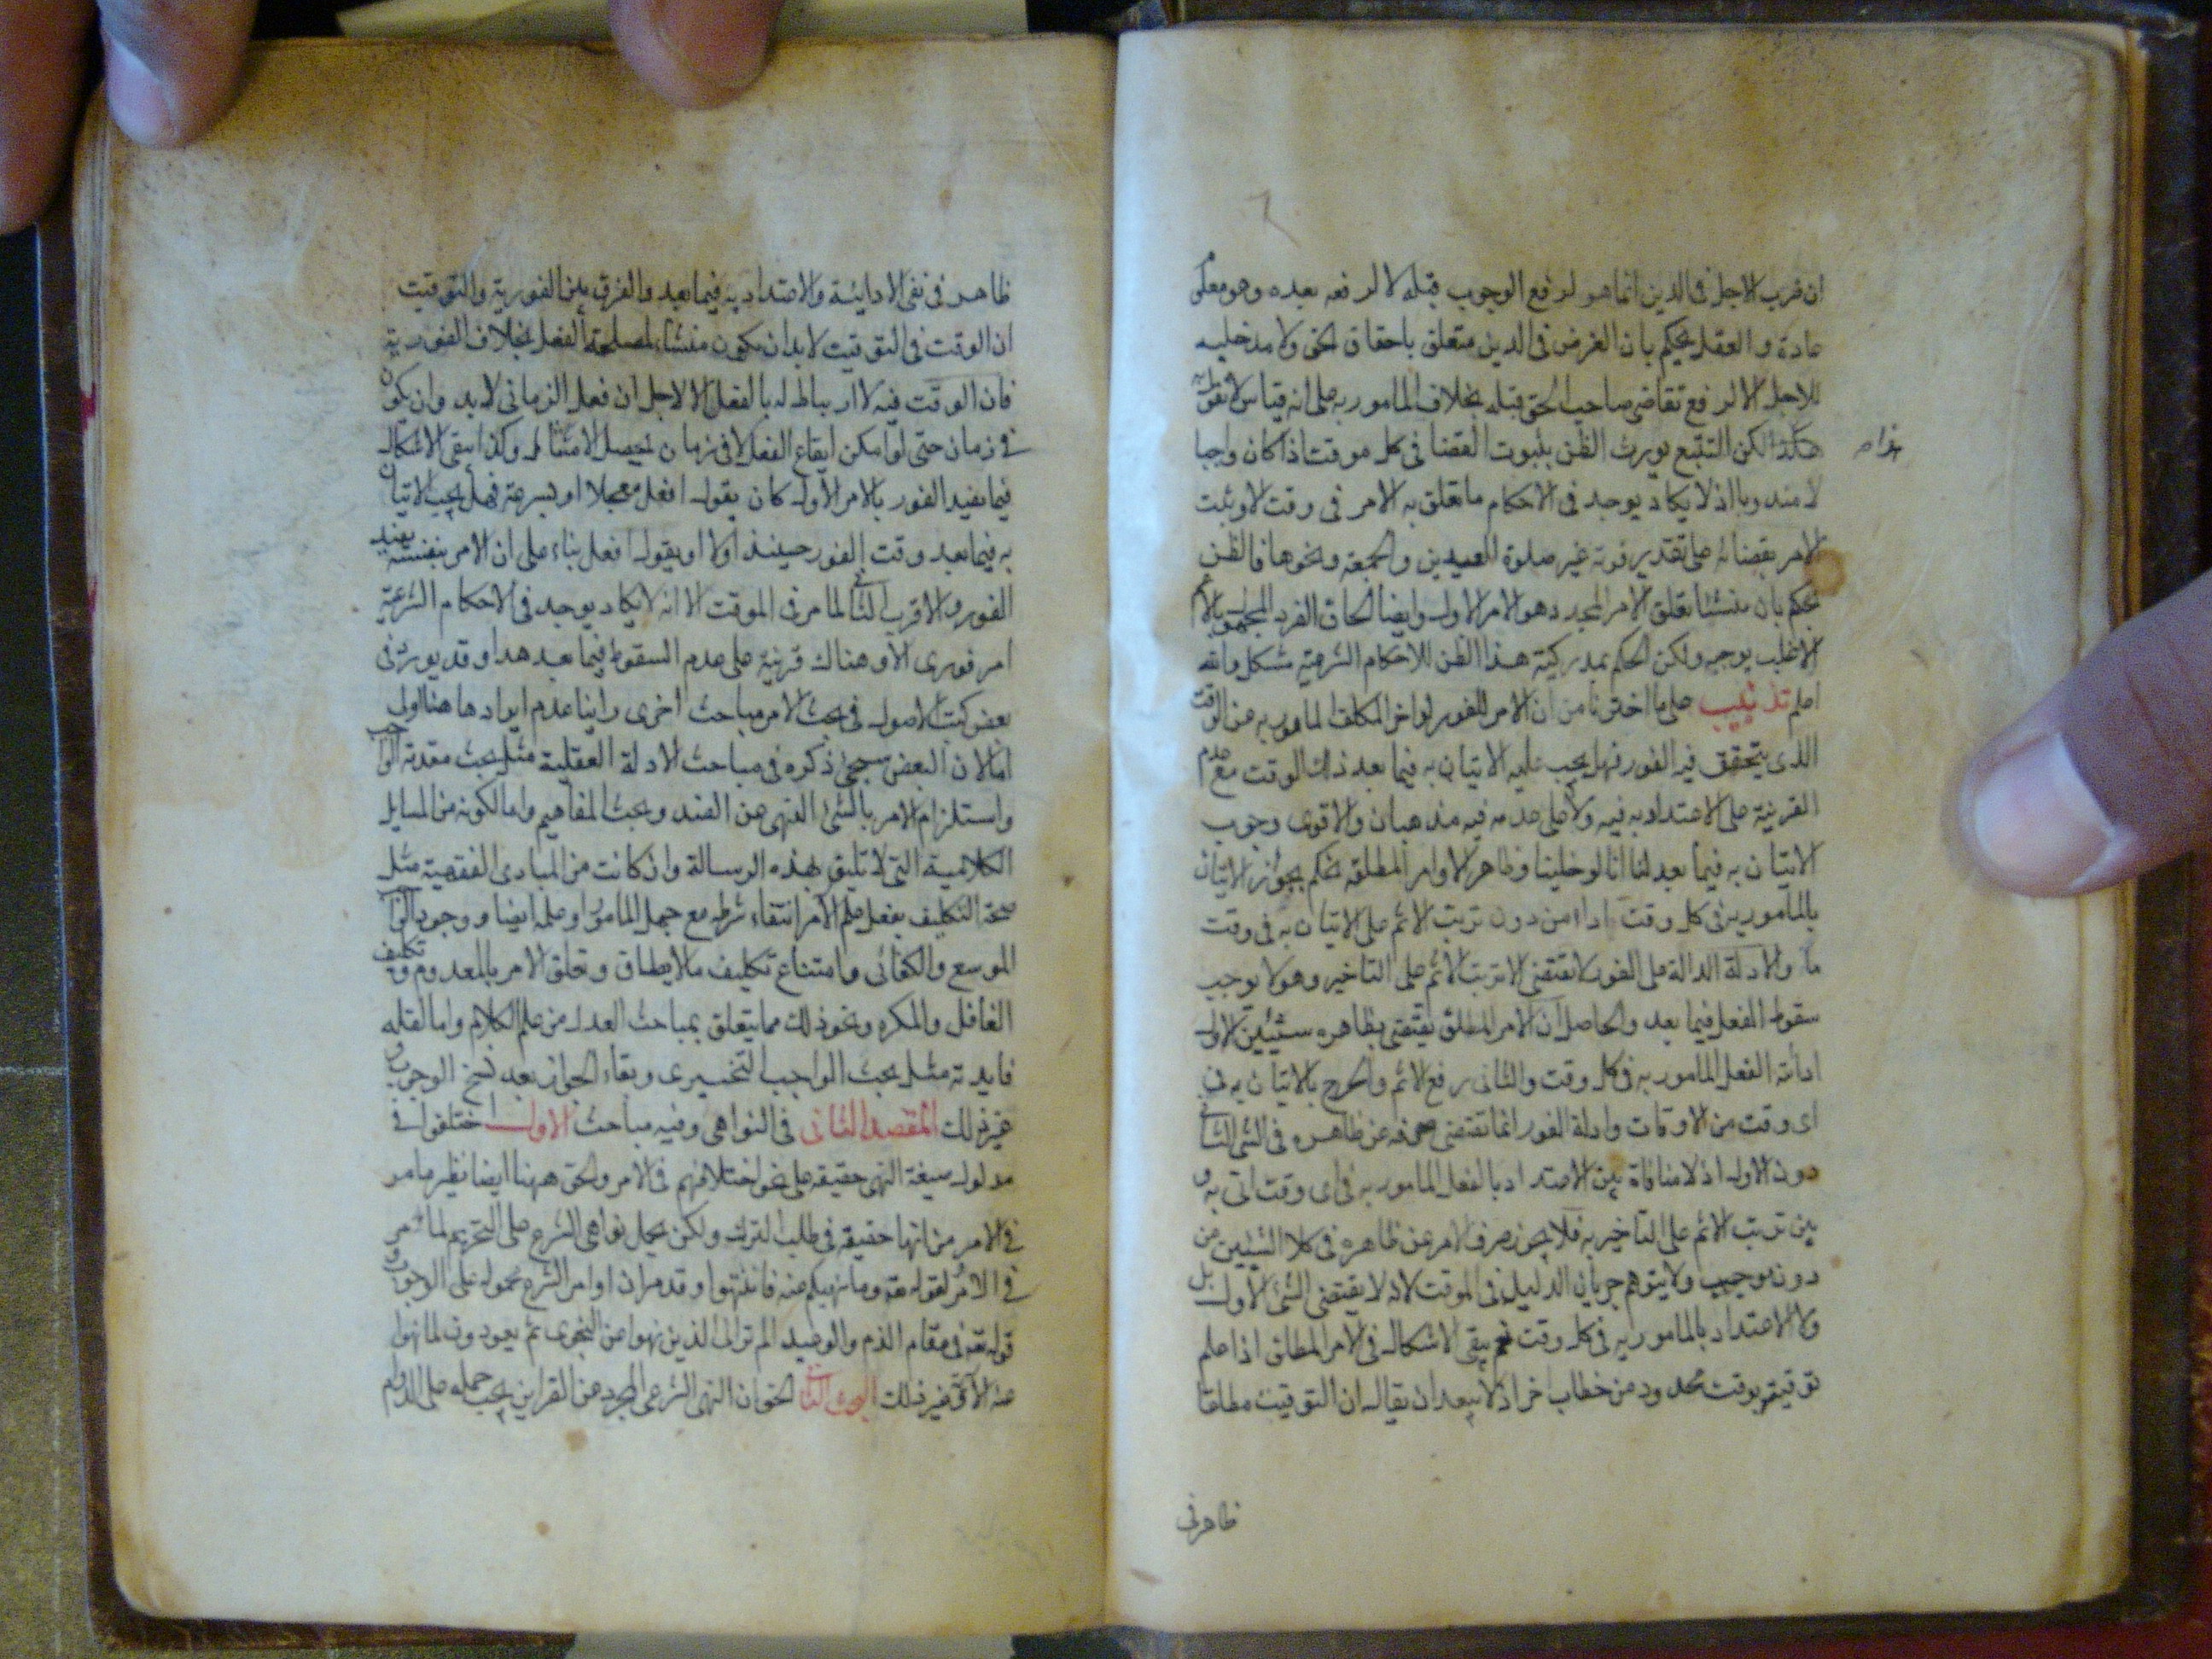 ان ضرب الاجل فى الدين انما هو لرفع الوجوب قبله لا لرفعه بعده وهو معلوم
عادة و العقل يحكم بان الغرض فى الدين متعلق باحقاق الحق ولا مدخلية
للاجل الا لرفع تقاضى صاحب الحق قبله بخلاف المامور به على انه قياس لا نقول به
هكذا لكن التتبع يورث الظن بثبوت القضا فى كل موقت اذا كان واجبا
هذا صح
لا مندوبا اذ لا يكاد يوجد فى الاحكام ما تعلق به الامر فى وقت لا وثبت
الامر بقضائه على تقدير فوته غير صلوة العيدين والجمعة ونحوها فالظن
يحكم بان منشئا تعلق الامر المجدد هو الامر الاول وايضا الحاق الفرد المجهول بالاعم
الاغلب يوجبه ولكن الحكم بمدركية هذا الظن للاحكام الشرعية مشكل والله
اعلم تذنيب على ما اخترنا من ان الامر للفور لو اخر المكلف المامور به عن الوقت
الذى يتحقق فيه الفور فهل يجب عليه الاتيان به فيما بعد ذلك الوقت مع عدم
القرينة على الاعتداد به فيه ولا على عدمه فيه مذهبان والاقوى وجوب
الاتيان به فيما بعد لنا انا لو خلينا وظاهر الاوامر المطلقة نحكم بجواز الاتيان
بالمامور به فى كل وقت اداء من دون ترتب الاثم على الاتيان به فى وقت
ما والادلة الدالة على الفور لا تقتضى الا ترتب الاثم على التاخير وهو لا يوجب
سقوط الفعل فيما بعد والحاصل ان الامر المطلق يقتضى بظاهره شيئين الاول
ادائية الفعل المامور به فى كل وقت والثانى رفع الاثم والحرج بالاتيان به فى
اى وقت من الاوقات وادلة الفور انما تقتضى صرفه عن ظاهره فى الشئ الثانى
دون الاول اذ لا منافاة بين الاعتداد بالفعل المامور به فى اى وقت اتى به و
بين ترتب الاثم على التاخير به فلا يجوز صرف الامر عن ظاهره فى كلا الشيئين من
دون موجب ولا يتوهم جريان الدليل فى الموقت لانه لا يقتضى الشئ الاول بل
ولا الاعتداد بالمامور به فى كل وقت نعم يبقى الاشكال فى الامر المطلق اذا علم
توقيته بوقت محدود من خطاب اخر اذ لا يبعد ان يقال ان التوقيت مطلقا
ظاهر فى
ظاهر فى نفى الادائية والاعتداد به فيما بعد والفرق بين الفورية والتوقيت
ان الوقت فى التوقيت لابد ان يكون منشاء لمصلحة الفعل بخلاف الفورية
فان الوقت فيه لا ارتباط له بالفعل الا لاجل ان فعل الزمانى لابد وان يكون
فى زمان حتى لو امكن ايقاع الفعل لا فى زمان لحصل الامتثال وكذا يبقى الاشكال
فيما يفيد الفور بالامر الاول كان يقول افعل معجلا او بسرعة فهل يجب الاتيان
به فيما بعد وقت الفور حينئذ اولا او يقول افعل بناء على ان الامر بنفسه يفيد
الفور والاقرب الثانى لما مر فى الموقت الا انه لا يكاد يوجد فى الاحكام الشرعية
امر فورى الا وهناك قرينة على عدم السقوط فيما بعد هذا وقد يورد فى
بعض كتب الاصول فى بحث الامر مباحث اخرى راينا عدم ايرادها هنا اولى
اما لان البعض سيجئ ذكره فى مباحث الادلة العقلية مثل بحث مقدمة الواجب
واستلزام الامر بالشئ النهى عن الضد وبحث المفاهيم واما لكونه من المسايل
الكلامية التى لا تليق بهذه الرسالة وان كانت من المبادى الفقهية مثل
صحة التكليف بفعل علم الآمر انتفاء شرطه مع جهل المامور او علمه ايضا ووجوب الواجب
الموسع والكفائى وامتناع تكليف ما لا يطاق وتعلق الامر بالمعدوم وتكليف
الغافل والمكره ونحو ذلك مما يتعلق بمباحث العدل من علم الكلام واما لقلة
فايدته مثل بحث الواجب التخييرى وبقاء الجواز بعد نسخ الوجوب و
غير ذلك المقصد الثانى فى النواهى وفيه مباحث الاول اختلفوا فى
مدلول صيغة النهى حقيقة على نحو اختلافهم فى الامر والحق ههنا ايضا نظير ما مر
فى الامر من انها حقيقة فى طلب الترك ولكن يحمل نواهى الشرع على التحريم لما مر
فى الامر لقوله تعه وما نهيكم عنه فانتهوا وقد مر ان اوامر الشرع محمولة على الوجوب و
قوله تعه فى مقام الذم والوعيد الم تر الى الذين نهوا عن النجوى ثم يعودون لما نهوا
عنه الآية وغير ذلك البحث الثانى الحق ان النهى الشرعى المجرد عن القراين يجب حمله على الدوام